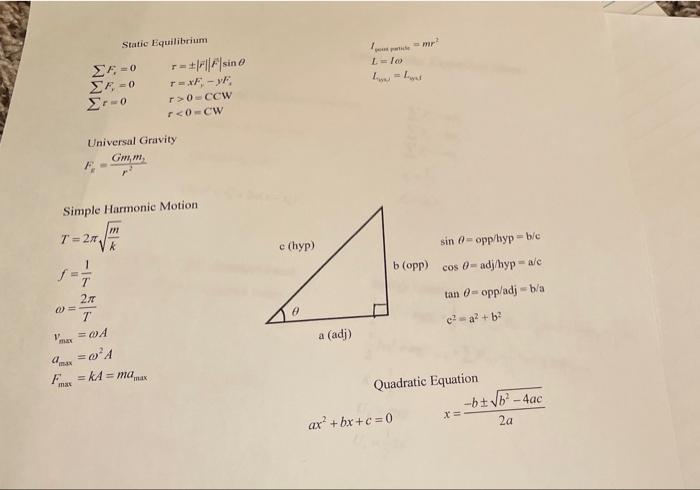 Static Equilibrium
∑F_x = 0
∑F_y = 0
∑τ = 0
τ = ±|r⃗||F⃗|sin θ
τ = xF_y − yF_x
τ > 0 = CCW
τ < 0 = CW
I_point particle = mr²
L = Iω
L_sys,i = L_sys,f
Universal Gravity
F_g = Gm₁m₂/r²
Simple Harmonic Motion
T = 2π√(m/k)
f = 1/T
ω = 2π/T
v_max = ωA
a_max = ω²A
F_max = kA = ma_max
c (hyp)
b (opp)
θ
a (adj)
sin θ = opp/hyp = b/c
cos θ = adj/hyp = a/c
tan θ = opp/adj = b/a
c² = a² + b²
Quadratic Equation
ax² + bx + c = 0
x = (−b ± √(b² − 4ac))/2a